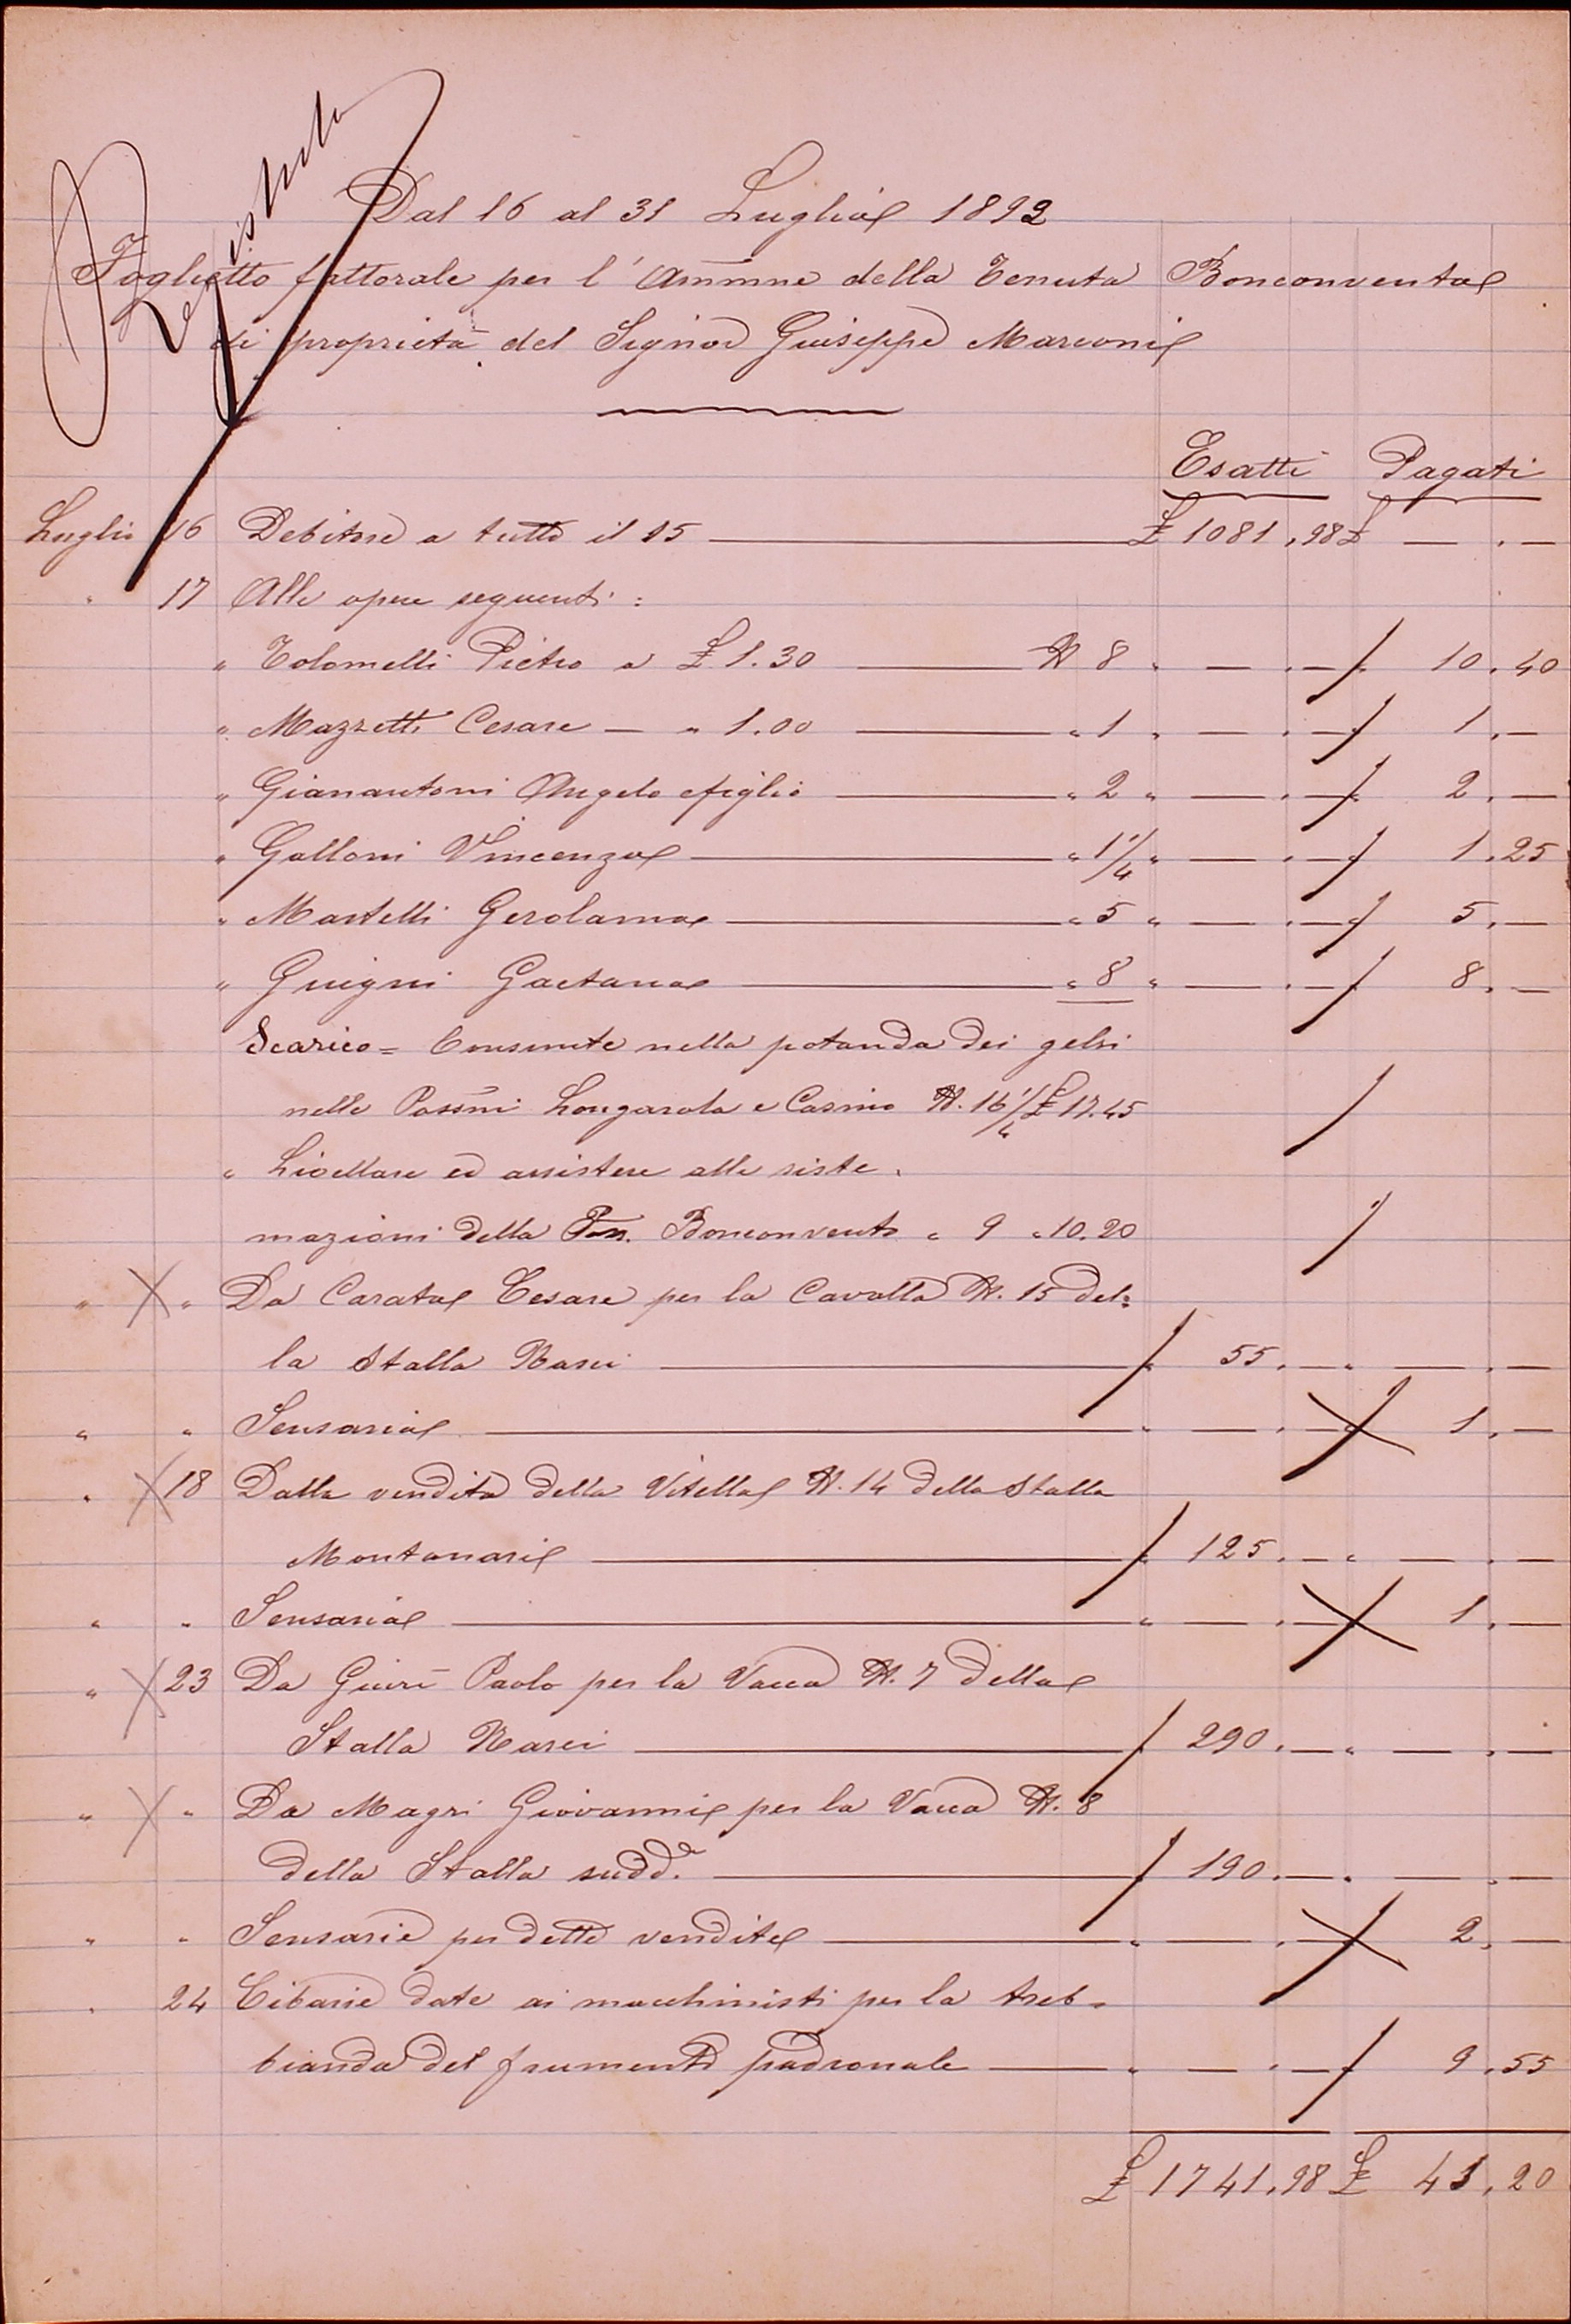 Registrato
Dal 16 al 31 Luglio 1892
Foglietto fattorale per l'Ammne della Tenuta Bonconvento
di proprietà del Signor Giuseppe Marconi
Esatti Pagati
Luglio 16 Debitore a tutto il 15 £ 1081,98 £ — . —
" 17 Alle opere seguenti:
" Tolomelli Pietro a £ 1.30 N 8 " — . — " 10.40
" Mazzetti Cesare — " 1.00 " 1 " — . — " 1.—
" Gianantoni Angelo e figlio " 2 " — . — " 2.—
" Galloni Vincenzo " 1 1/4 " — . — " 1.25
" Martelli Gerolamo " 5 " — . — " 5.—
" Guigni Gaetano " 8 " — . — " 8.—
Scarico = Consunte nella potanda dei gelsi
nelle Possni Longarola e Casino N. 16 1/4 £ 17.45
" Livellare ed assistere alle siste.
mazioni della Poss. Bonconvento " 9 " 10.20
" " Da Carata Cesare per la Cavalla N. 15 del=
la Stalla Nasci " 55.— " — . —
" " Sensaria " — . — " 1.—
" 18 Dalla vendita della Vitella N. 14 della Stalla
Montanari " 125.— " — . —
" " Sensaria " — . — " 1.—
" 23 Da Paolo per la Vacca N. 7 della
Stalla Nasci " 290.— " — . —
" " Da Magri Giovanni per la Vacca N. 8
della Stalla sudda. " 190.— " — . —
" " Sensarie per dette vendite " — . — " 2.—
" 24 Cibarie date ai macchinisti per la treb=
bianda del frumento padronale " — . — " 9.55
£ 1741,98 £ 41,20